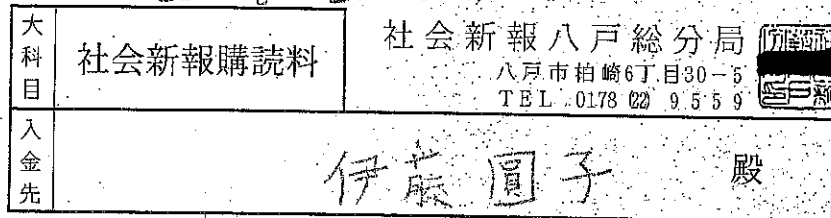 大科目
社会新報購読料
社会新報八戸総分局
八戸市柏崎6丁目30-5
TEL 0178 (22) 9559
入金先
伊藤 圓子 殿